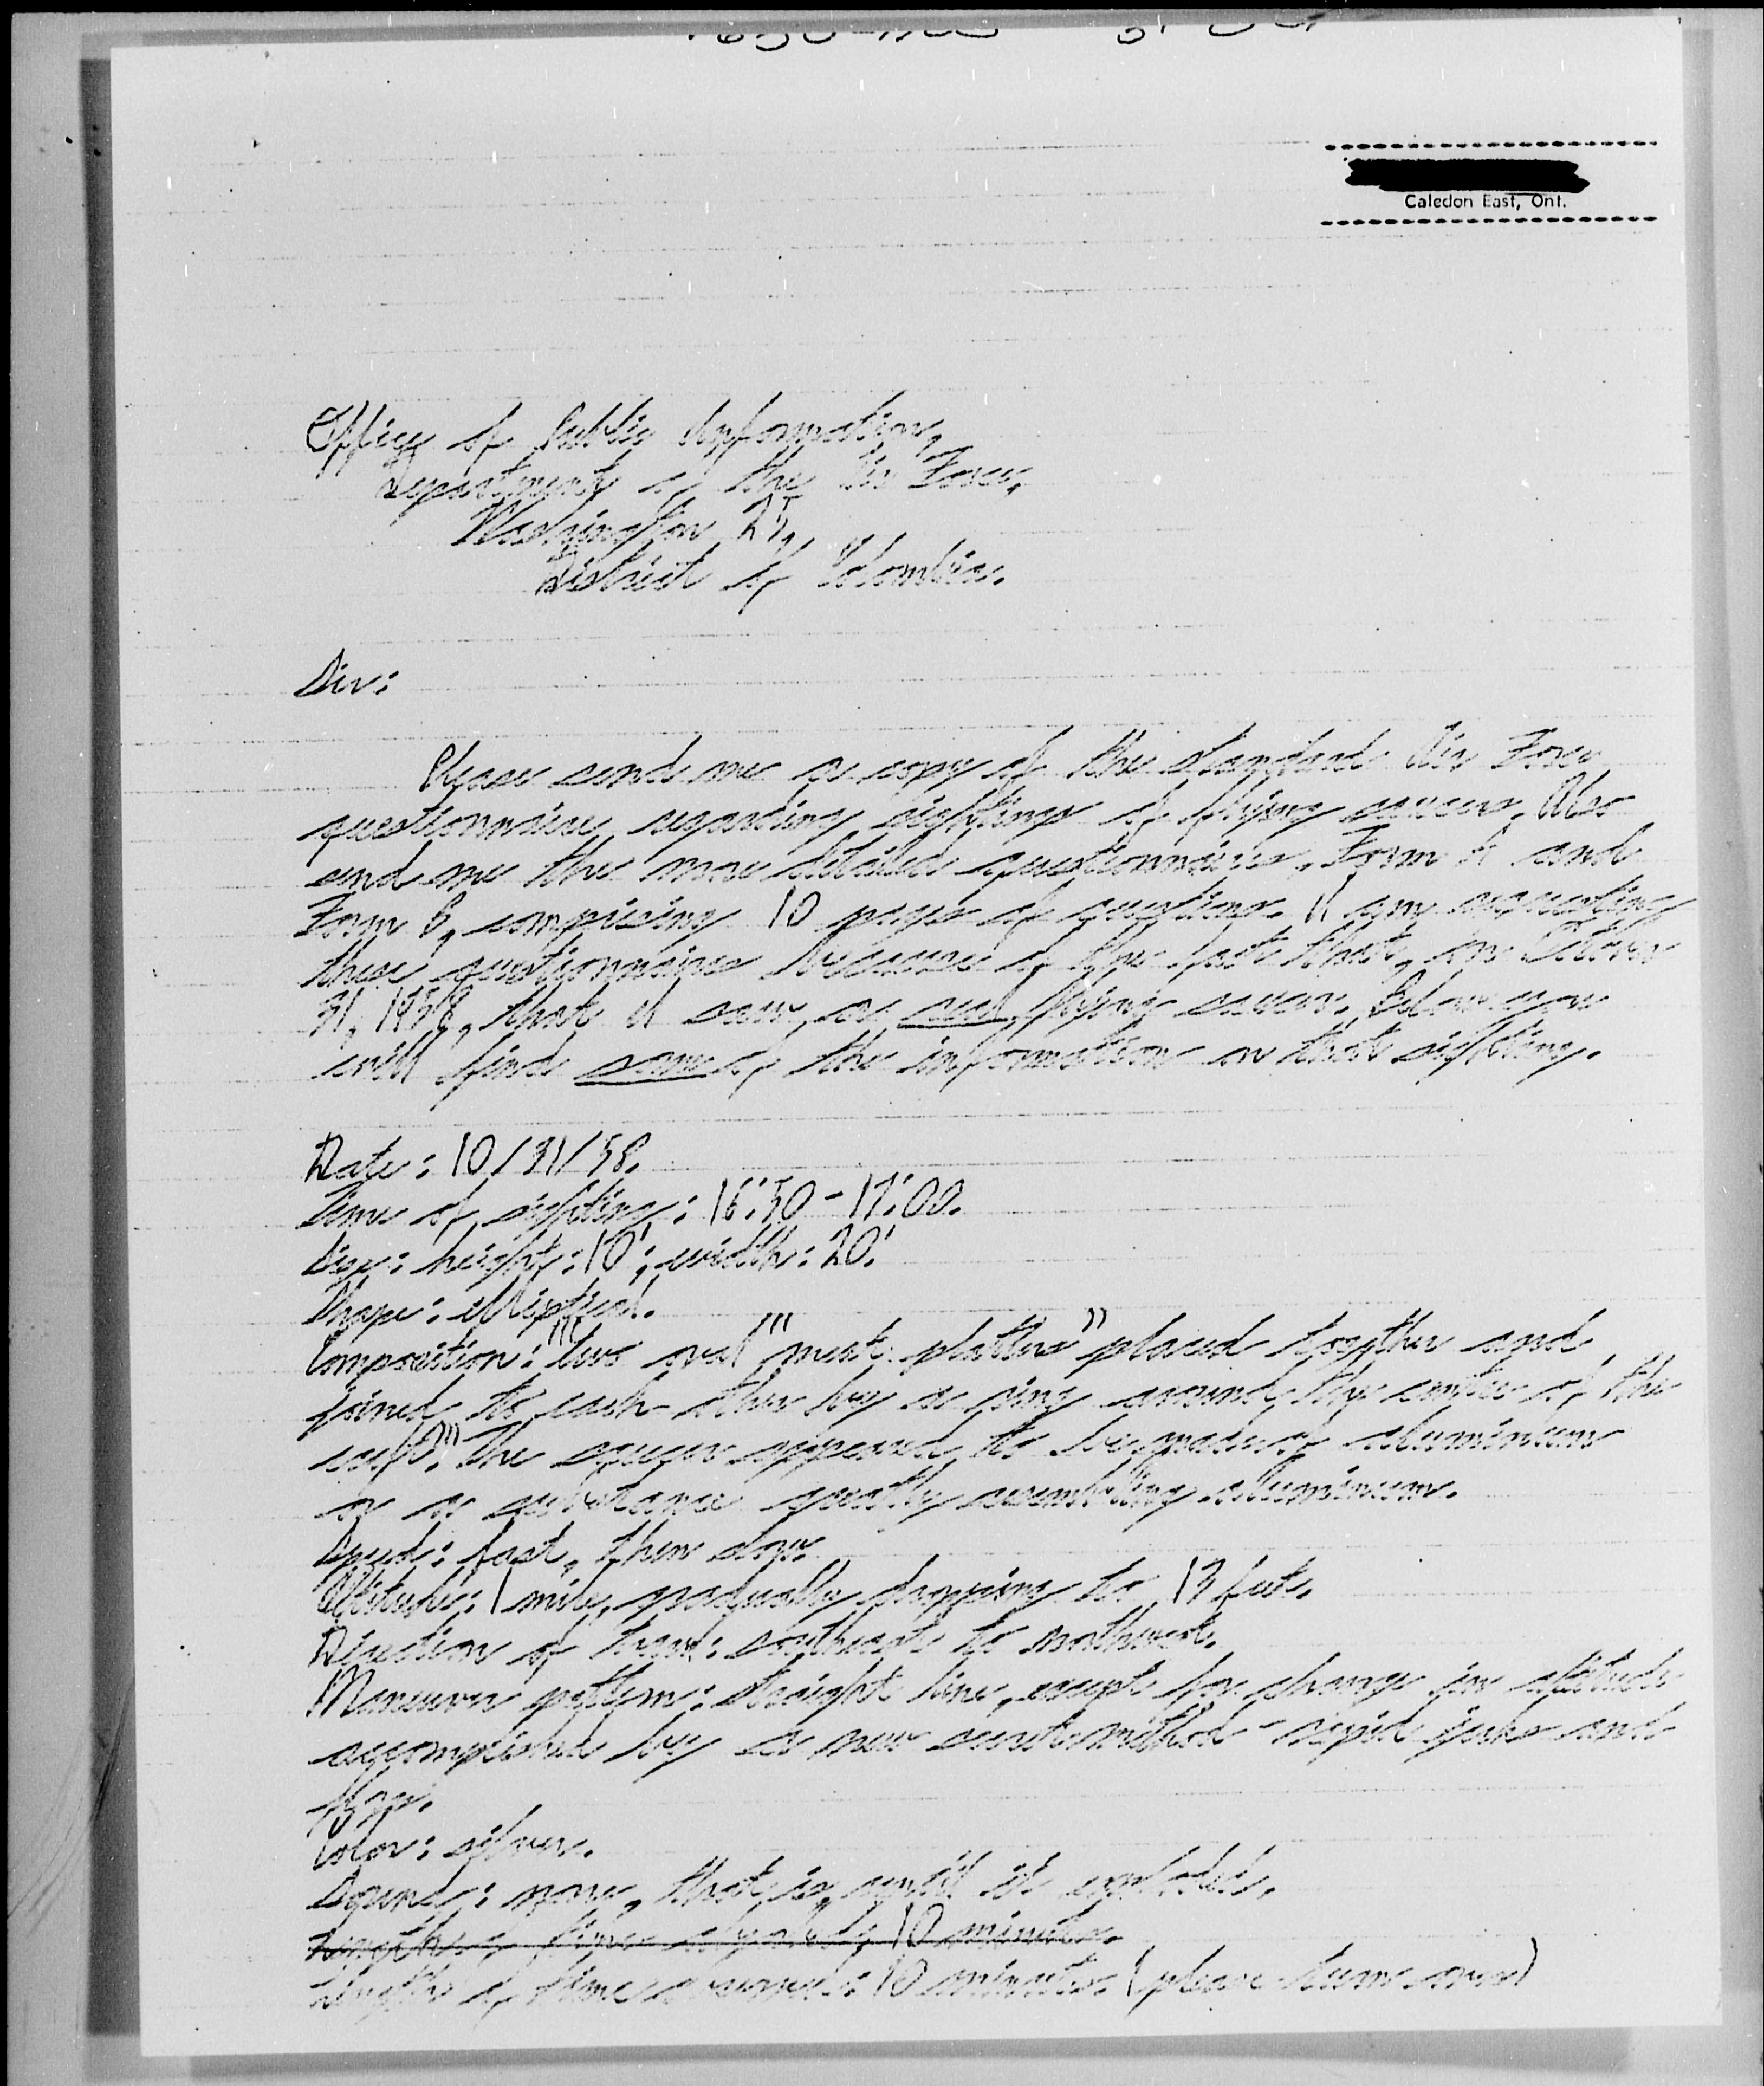 Caledon East, Ont.
Office of Public Information,
Department of the Air Force,
Washington 25,
District of Colombia.
Sir:
Please send me a copy of the standard Air Force
questionnaire regarding sightings of flying saucers. Also
send me the more detailed questionnaires, Form A and
Form B, comprising 10 pages of questions. I am requesting
these questionnaires because of the fact that, on October
31, 1958, that I saw a real flying saucer. Below you
will find some of the information on that sighting.
Date: 10/31/58.
Time of sighting: 16:50-17:00.
Size: height: 10'; width: 20'.
Shape: elliptical.
Composition: "'two oval "meat platters" placed together and
joined to each other by a ring around the centre of the
craft.'" The saucer appeared to be made of aluminium
or a substance greatly resembling aluminium.
Speed: fast, then slow.
Altitude: 1 mile, gradually dropping to 13 feet.
Direction of travel: southeast to northwest.
Maneuver pattern: straight line, except for change in altitude
accomplished by a new secret method - rapid jerks and
Color: silver.
Sound: none, that is, until it exploded.
10 minutes.
Length of time observed: 10 minutes. (please turn over)